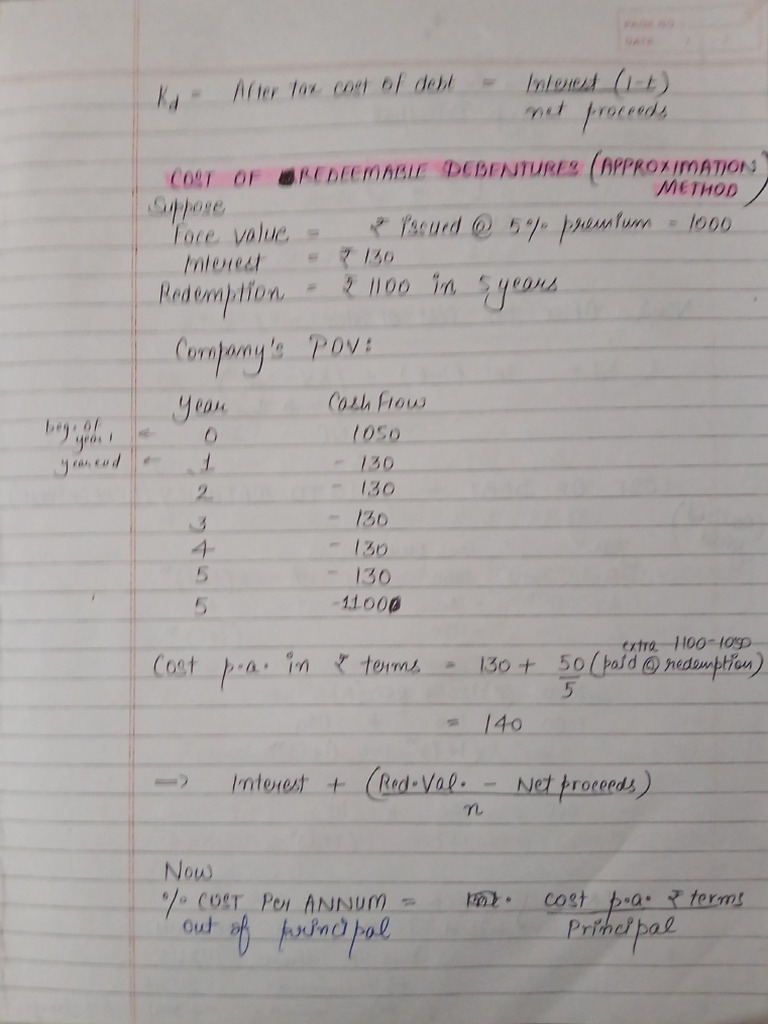 PAGE NO
DATE
Kd = After tax cost of debt = Interest (1-t)
net proceeds
COST OF REDEEMABLE DEBENTURES (APPROXIMATION
METHOD)
Suppose
Face value = ₹ issued @ 5% premium = 1000
Interest = ₹ 130
Redemption = ₹ 1100 in 5 years
Company's POV:
Year Cash Flow
beg. of year 1 ← 0 1050
year end ← 1 - 130
2 - 130
3 - 130
4 - 130
5 - 130
5 -1100
extra 1100-1050
Cost p.a. in ₹ terms = 130 + 50 (paid @ redemption)
5
= 140
=> Interest + (Red. Val. - Net proceeds)
n
Now
% COST Per ANNUM = cost p.a. ₹ terms
out of principal Principal